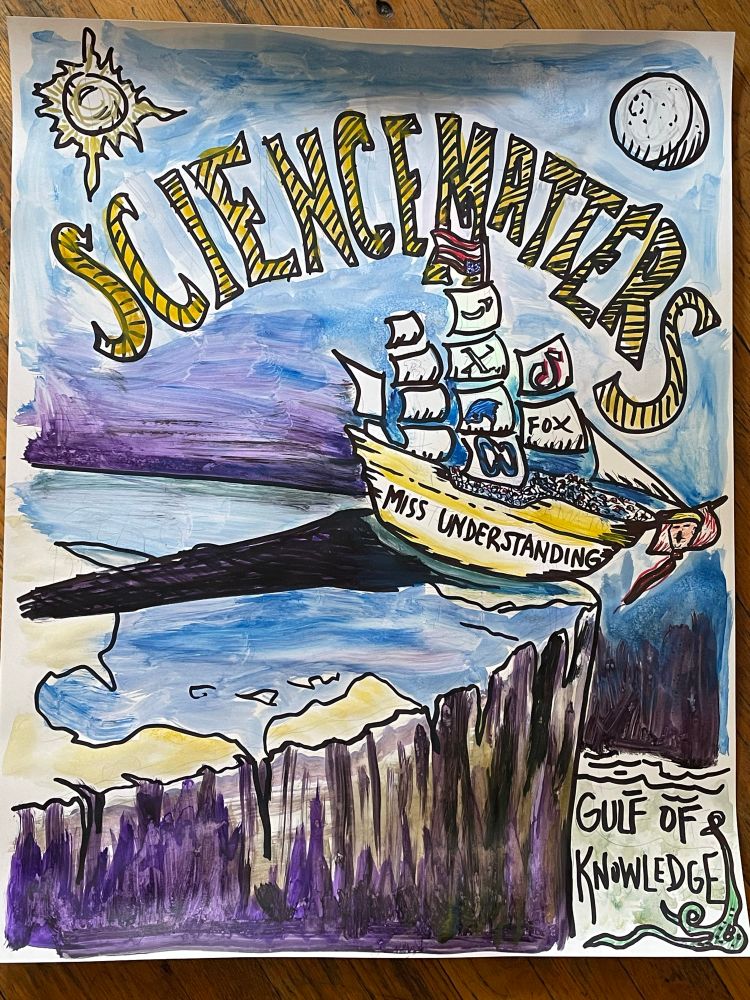 SCIENCE MATTERS
X
FOX
MISS UNDERSTANDING
GULF OF
KNOWLEDGE